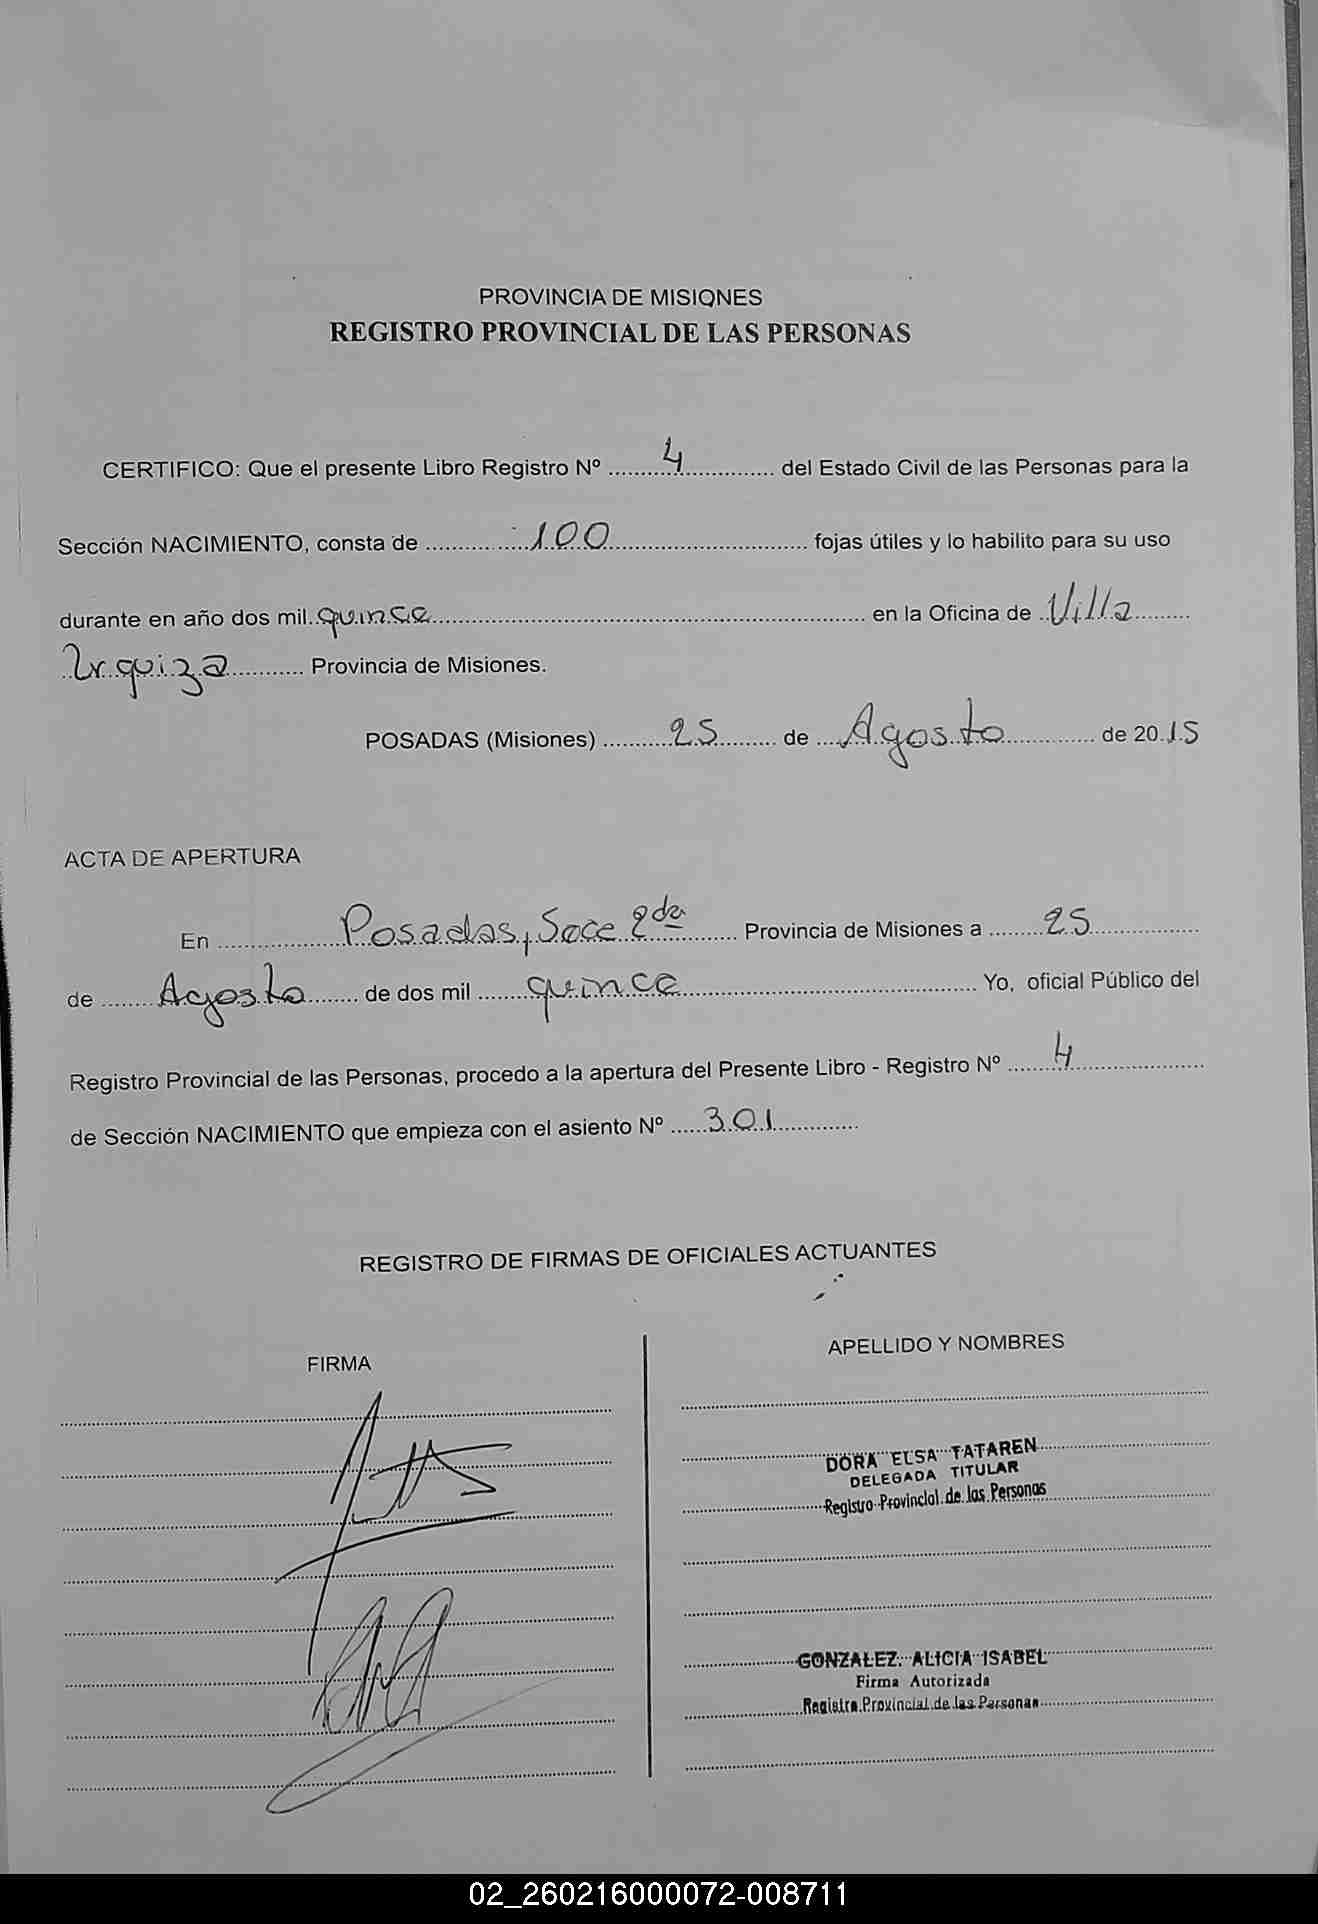 PROVINCIA DE MISIONES
REGISTRO PROVINCIAL DE LAS PERSONAS
CERTIFICO: Que el presente Libro Registro Nº 4 del Estado Civil de las Personas para la
Sección NACIMIENTO, consta de 100 fojas útiles y lo habilito para su uso
durante en año dos mil quince en la Oficina de Villa
Urquiza Provincia de Misiones.
POSADAS (Misiones) 25 de Agosto de 2015
ACTA DE APERTURA
En Posadas, Secc 2da Provincia de Misiones a 25
de Agosto de dos mil quince Yo, oficial Público del
Registro Provincial de las Personas, procedo a la apertura del Presente Libro - Registro Nº 4
de Sección NACIMIENTO que empieza con el asiento Nº 301
REGISTRO DE FIRMAS DE OFICIALES ACTUANTES
FIRMA
APELLIDO Y NOMBRES
DORA ELSA TATAREN
DELEGADA TITULAR
Registro Provincial de las Personas
GONZALEZ, ALICIA ISABEL
Firma Autorizada
Registro Provincial de las Personas
02_260216000072-008711